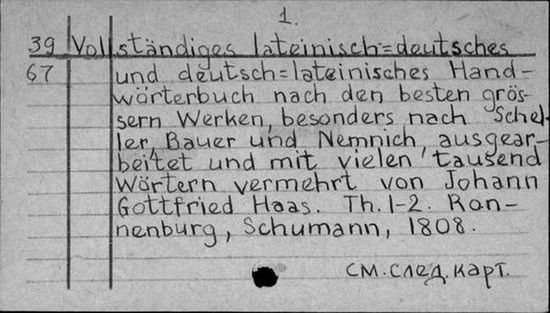 1.
39 Vollständiges lateinisch=deutsches
67 und deutsch=lateinisches Hand-
wörterbuch nach den besten grös-
sern Werken, besonders nach Schel-
ler, Bauer und Nemnich, ausgear-
beitet und mit vielen tausend
Wörtern vermehrt von Johann
Gottfried Haas. Th. 1-2. Ron-
nenburg, Schumann, 1808.
см. след. карт.